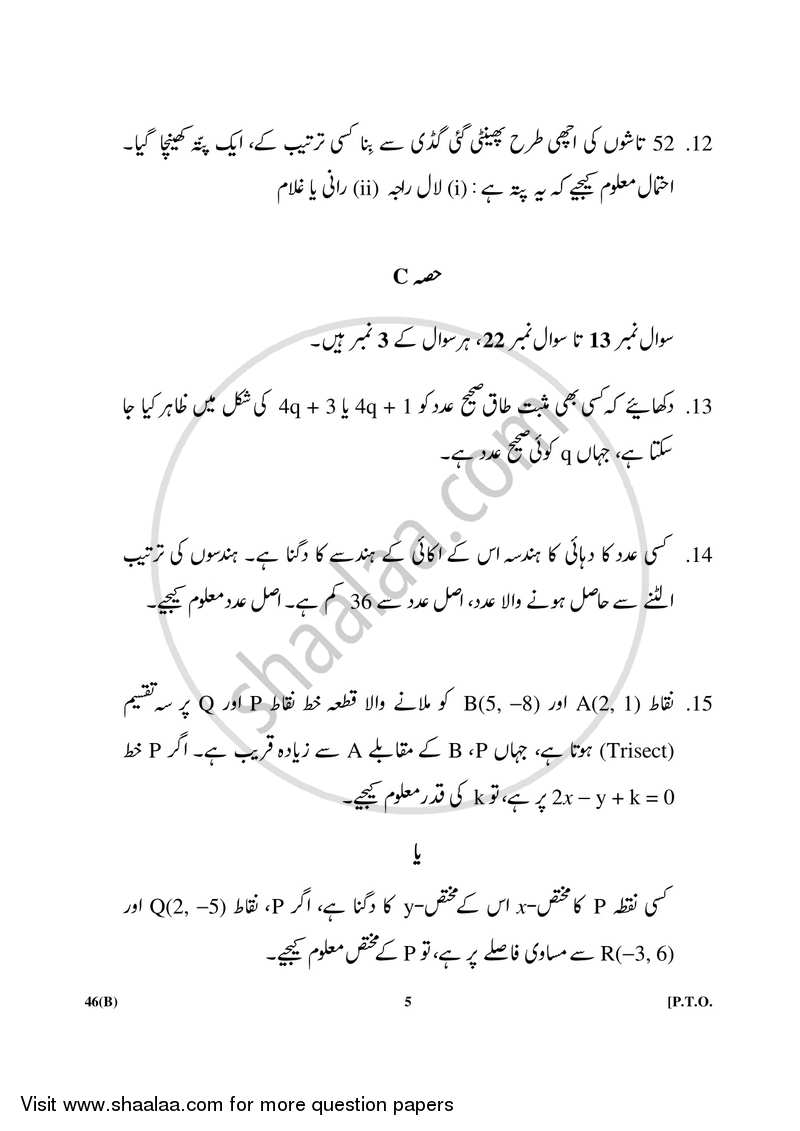 12. 52 تاشوں کی اچھی طرح پھینٹی گئی گڈی سے بِنا کسی ترتیب کے، ایک پتّہ کھینچا گیا۔
احتمال معلوم کیجیے کہ یہ پتہ ہے : (i) لال راجہ (ii) رانی یا غلام
حصہ C
سوال نمبر 13 تا سوال نمبر 22، ہر سوال کے 3 نمبر ہیں۔
13. دکھائیے کہ کسی بھی مثبت طاق صحیح عدد کو 4q + 1 یا 4q + 3 کی شکل میں ظاہر کیا جا
سکتا ہے، جہاں q کوئی صحیح عدد ہے۔
14. کسی عدد کا دہائی کا ہندسہ اس کے اکائی کے ہندسے کا دگنا ہے۔ ہندسوں کی ترتیب
الٹنے سے حاصل ہونے والا عدد، اصل عدد سے 36 کم ہے۔ اصل عدد معلوم کیجیے۔
15. نقاط A(2, 1) اور B(5, –8) کو ملانے والا قطعہ خط نقاط P اور Q پر سہ تقسیم
(Trisect) ہوتا ہے، جہاں P، B کے مقابلے A سے زیادہ قریب ہے۔ اگر P خط
2x – y + k = 0 پر ہے، تو k کی قدر معلوم کیجیے۔
یا
کسی نقطہ P کا مختص-x اس کے مختص-y کا دگنا ہے، اگر P، نقاط Q(2, –5) اور
R(–3, 6) سے مساوی فاصلے پر ہے، تو P کے مختص معلوم کیجیے۔
46(B) 5 [P.T.O.
shaalaa.com
Visit www.shaalaa.com for more question papers